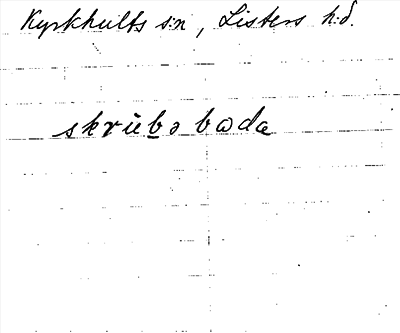 Kyrkhults sn, Listers hd.
skrübə bada